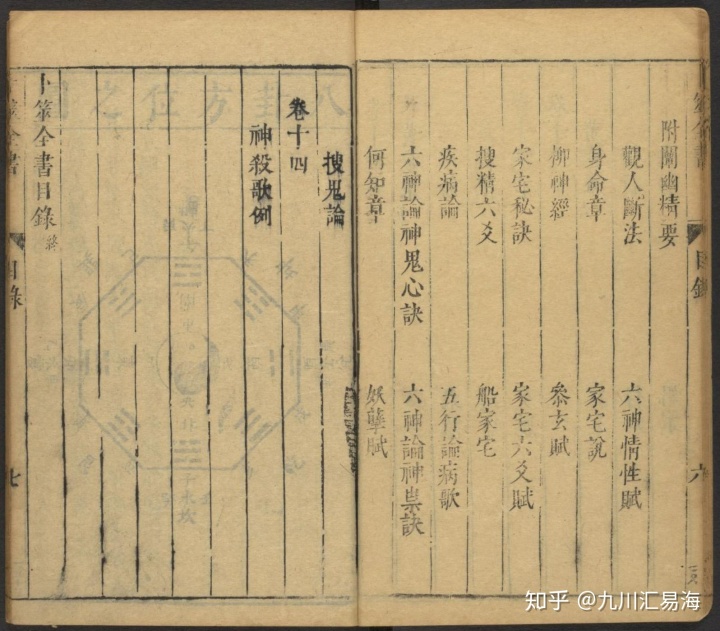 附闡幽精要
觀人斷法 六神情性賦
身命章 家宅說
柳神經 叅玄賦
家宅秘訣 家宅六爻賦
搜精六爻 船家宅
疾病論 五行論病歌
六神論神鬼心訣 六神論神祟訣
何知章 妖孽賦
目錄 六
搜鬼論
卷十四
神殺歌例
卜筮全書目錄終
目錄 七
知乎 @九川汇易海